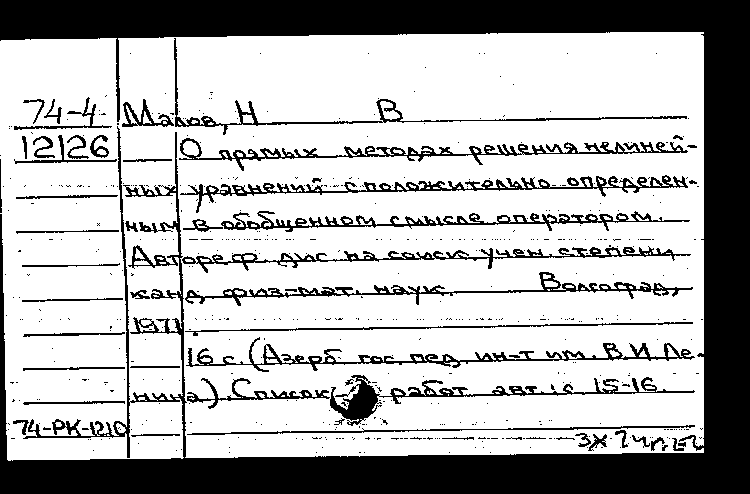 74-4 Малов, Н В
12126 О прямых методах решения нелиней-
ных уравнений с положительно определен-
ным в обобщенном смысле оператором.
Автореф дис на соиск. учен. степени
канд. физ.-мат. наук. Волгоград,
1971.
16 с. (Азерб гос. пед. ин-т им. В.И. Ле-
нина). Список работ авт.: с 15-16.
74-РК-1210